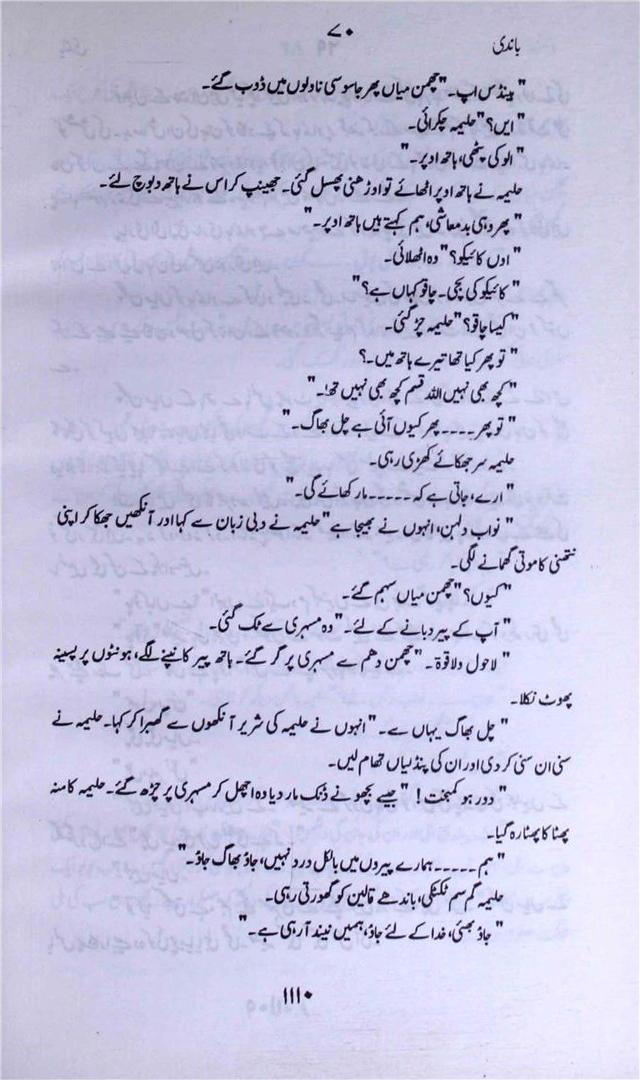 ۷۰
باندی
"ہینڈس اپ۔" چھمن میاں پھر جاسوسی ناولوں میں ڈوب گئے۔
"ایں؟" حلیمہ چکرائی۔
"الو کی پٹھی، ہاتھ اوپر۔"
حلیمہ نے ہاتھ اوپر اٹھائے تو اوڑھنی پھسل گئی۔ جھینپ کر اس نے ہاتھ دبوچ لئے۔
"پھر وہی بدمعاشی، ہم کہتے ہیں ہاتھ اوپر۔"
"اوں کائیکو؟" وہ اٹھلائی۔
"کائیکو کی بچی۔ چاقو کہاں ہے؟"
"کیسا چاقو؟" حلیمہ چڑ گئی۔
"تو پھر کیا تھا تیرے ہاتھ میں۔؟
"کچھ بھی نہیں اللہ قسم کچھ بھی نہیں تھا۔"
"تو پھر ۔۔۔۔ پھر کیوں آئی ہے چل بھاگ۔"
حلیمہ سر جھکائے کھڑی رہی۔
"ارے، جاتی ہے کہ ۔۔۔۔۔ مار کھائے گی۔"
"نواب دلہن، انہوں نے بھیجا ہے" حلیمہ نے دبی زبان سے کہا اور آنکھیں جھکا کر اپنی
نتھنی کا موتی گھمانے لگی۔
"کیوں؟" چھمن میاں سہم گئے۔
"آپ کے پیر دبانے کے لئے۔" وہ مسہری سے ٹک گئی۔
"لاحول ولا قوۃ۔" چھمن دھم سے مسہری پر گر گئے۔ ہاتھ پیر کانپنے لگے، ہونٹوں پر پسینہ
پھوٹ نکلا۔
"چل بھاگ یہاں سے۔" انہوں نے حلیمہ کی شریر آنکھوں سے گھبرا کر کہا۔ حلیمہ نے
سنی ان سنی کر دی اور ان کی پنڈلیاں تھام لیں۔
"دور ہو کمبخت!" جیسے بچھو نے ڈنک مار دیا وہ اچھل کر مسہری پر چڑھ گئے۔ حلیمہ کا منہ
پھٹا کا پھٹا رہ گیا۔
"ہم ۔۔۔۔۔ ہمارے پیروں میں بالکل درد نہیں، جاؤ بھاگ جاؤ۔"
حلیمہ گم سم ٹکٹکی، باندھے قالین کو گھورتی رہی۔
"جاؤ بھئی، خدا کے لئے جاؤ، ہمیں نیند آ رہی ہے۔"
۱۱۱۰